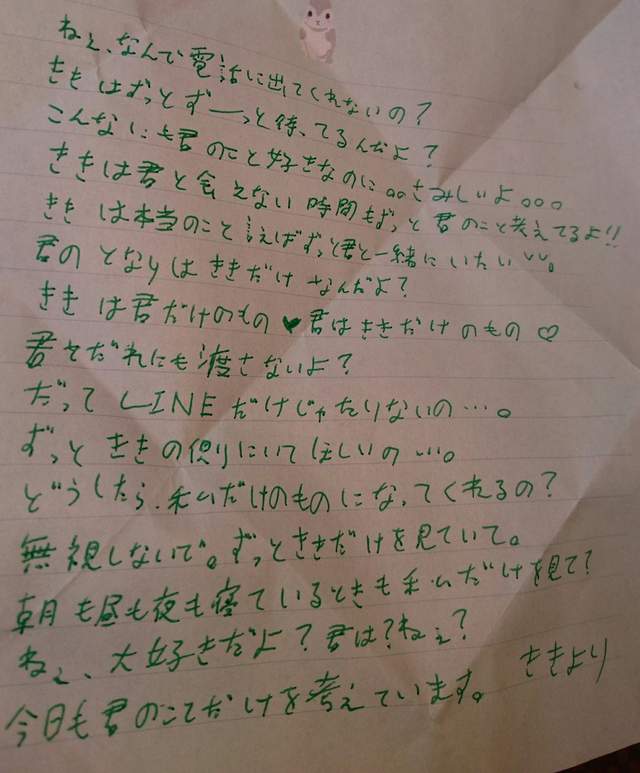 ねぇ、なんで電話に出てくれないの？
ききはずっとずーっと待ってるんだよ？
こんなにも君のこと好きなのに。。さみしいよ。。。
ききは君と会えない時間もずっと君のこと考えてるよ!!
ききは本当のこと言えばずっと君と一緒にいたい、、。
君のとなりはききだけなんだよ？
ききは君だけのもの♥君はききだけのもの♡
君をだれにも渡さないよ？
だってLINEだけじゃたりないの…。
ずっとききの側りにいてほしいの…。
どうしたら、私だけのものになってくれるの？
無視しないで。ずっとききだけを見ていて。
朝も昼も夜も寝ているときも私だけを見て？
ねぇ、大好きだよ？君は？ねぇ？
ききより
今日も君のこてだけを考えています。